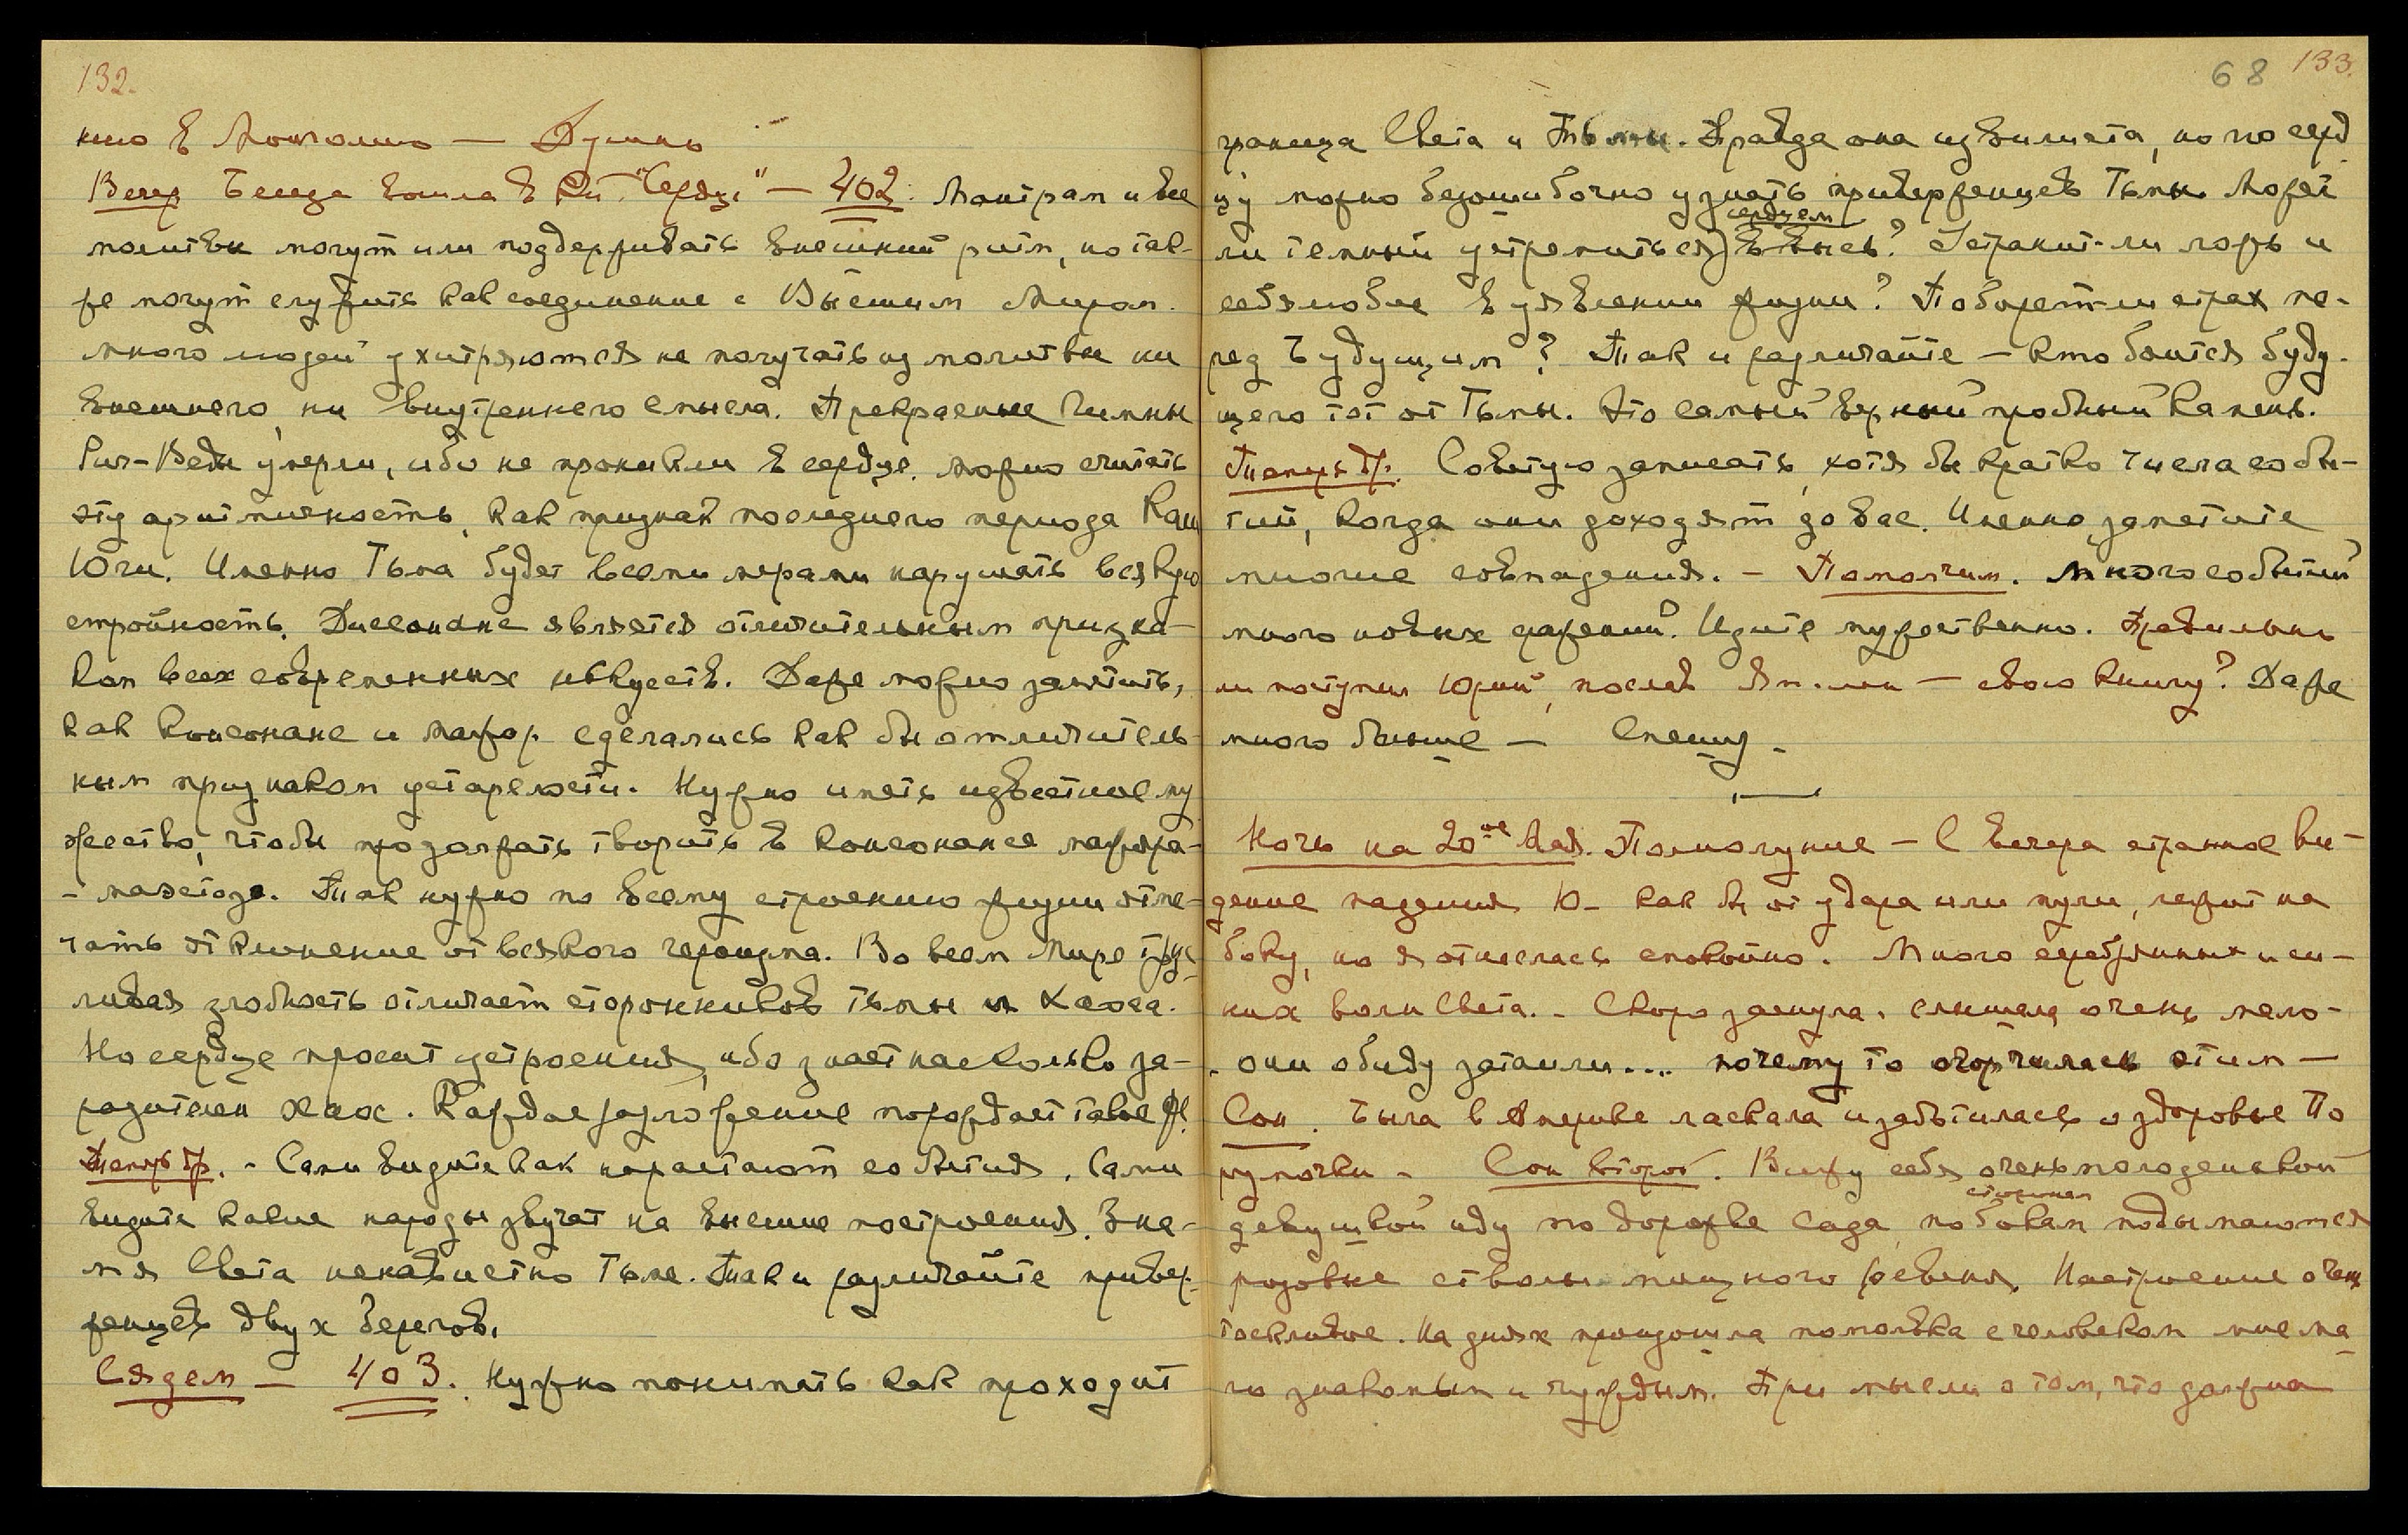 132.
нию в Монголию — Думаю
Вечер Беседа вошла в Кн. "Сердце" — 402. Мантрам и все
молитвы могут или поддерживать внешний ритм, но так-
же могут служить как соединение с Высшим Миром.
много людей ухитряются не получать из молитвы ни
внешнего, ни внутреннего смысла. Прекрасные Гимны
Риг-Веды умерли, ибо не проникли в сердце. можно считать
эту аритмичность, как признак последнего периода Кали
Юги. Именно Тьма будет всеми мерами нарушать всякую
стройность. Диссонанс является отличительным призна-
ком всех современных искусств. Даже можно заметить,
как консонанс и мажор сделались как бы отличитель-
ным признаком устарелости. Нужно иметь известное му
жество, чтобы продолжать творить в консонансе мажора-
- маэстозо. Так нужно по всему строению жизни отме-
чать отклонение от всякого героизма. Во всем Мире трус-
ливая злобность отличает сторонников тьмы и Хаоса.
Но сердце просит устроения, ибо знает насколько за-
разителен хаос. Каждое разложение порождает такое же.
Теперь др. - Сами видите как нарастают события. Сами
видите какие народы звучат на высшие построения. Зна-
мя Света ненавистно Тьме. Так и различайте привер-
женцев двух берегов.
Сядем — 403. Нужно понимать как проходит
68 133.
граница Света и Тьмы. Правда она извилиста, но по серд
цу можно безошибочно узнать приверженцев Тьмы. Может
сердцем
ли темный устремиться ввысь? Устранит-ли ложь и
себялюбие в уявлении жизни? Поборет-ли страх пе-
ред Будущим? Так и различайте — кто боится буду-
щего тот от Тьмы. Это самый верный пробный камень.
Теперь др. Советую записать, хотя бы кратко числа собы-
тий, когда они доходят до вас. Именно, заметите
многие совпадения. - Помолчим. Много событий
много новых сражений. Идите мужественно. Правильно
ли поступил Юрий, послав - свою книгу? Даже
много больше — Спешу -
Ночь на 20ое Мая. Полнолуние — С вечера странное ви-
дение падения Ю - как бы от удара или пули, лежит на
боку, но я отнеслась спокойно. Много серебряных и си-
них волн Света. - Скоро заснула. слышала очень мало-
. они обиду затаили.... почему то огорчилась этим —
Сон. Была в Америке ласкала и заботилась о здоровье По
румочки - Сон второй. Вижу себя очень молоденькой
сторонам
девушкой иду по дорожке сада по бокам подымаются
розовые стволы мощного ревеня. Настроение очень
тоскливое. На днях произошла помолвка с человеком мне ма
ло знакомым и чуждым. При мысли о том, что должна